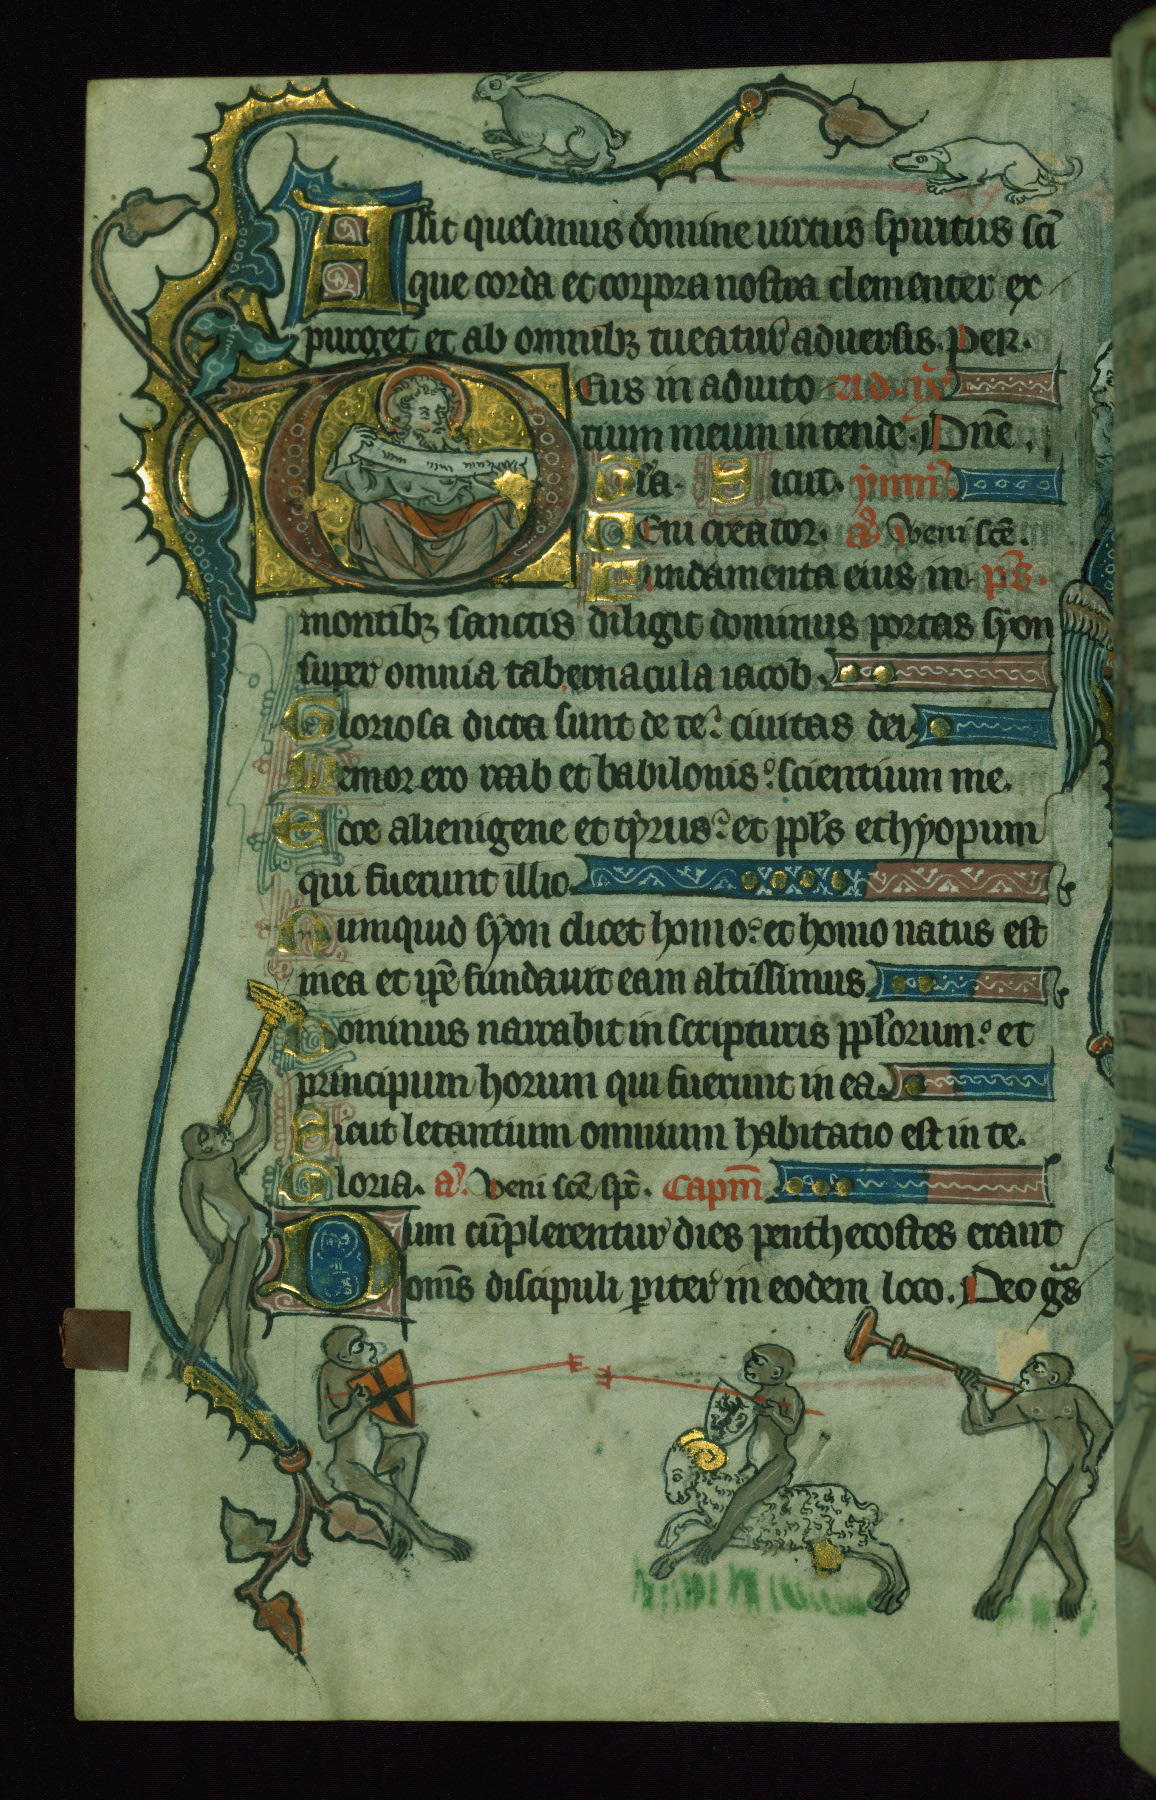 Assit quesumus domine uirtus spiritus sci
que corda et corpora nostra clementer ex
purget et ab omnibꝫ tueatur aduersis. Per.
Deus in adiuto ad .ix.
rium meum intende. Dne.
Gla. Sicut. ymn.
Ueni creator. a. Veni sce.
Fundamenta eius in ps.
montibꝫ sanctis diligit dominus portas syon
super omnia tabernacula iacob.
Gloriosa dicta sunt de te: ciuitas dei.
Memor ero raab et babilonis: scientium me.
Ecce alienigene et tyrus: et ppls ethyopum
qui fuerunt illic.
Numquid syon dicet homo: et homo natus est
in ea et ipe fundauit eam altissimus.
Dominus narrabit in scripturis pplorum: et
principum horum qui fuerunt in ea.
Sicut letantium omnium habitatio est in te.
Gloria. a. Veni sce spc. Capm.
Dum cumplerentur dies penthecostes erant
oms discipuli pariter in eodem loco. Deo gas